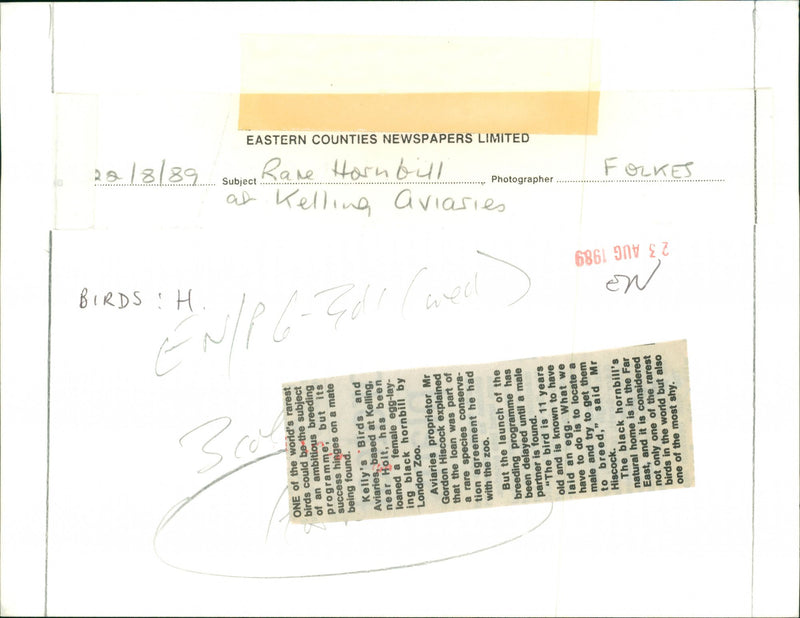 EASTERN COUNTIES NEWSPAPERS LIMITED
22/8/89 Subject Rare Hornbill Photographer FOLKES
at Kelling Aviaries
23 AUG 1989
EN
BIRDS : H.
EN/PG-3di (wed)
ONE of the world's rarest
birds could be the subject
of an ambitious breeding
programme, but its
success hinges on a mate
being found.
Kelly's Birds and
Aviaries, based at Kelling,
near Holt, has been
loaned a female egg-lay-
ing black hornbill by
London Zoo.
Aviaries proprietor Mr
Gordon Hiscock explained
that the loan was part of
a rare species conserva-
tion agreement he had
with the zoo.
But the launch of the
breeding programme has
been delayed until a male
partner is found.
"The bird is 11 years
old and is known to have
laid an egg. What we
have to do is to locate a
male and try to get them
to breed," said Mr
Hiscock.
The black hornbill's
natural home is in the Far
East, and it is considered
not only one of the rarest
birds in the world but also
one of the most shy.